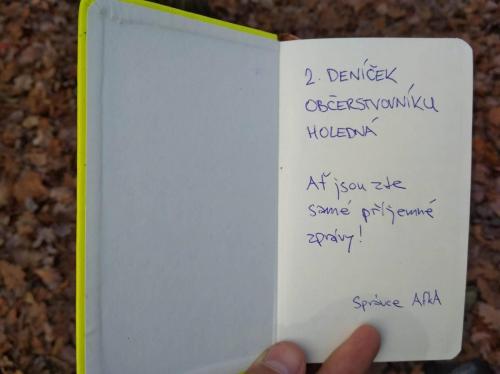 2. DENÍČEK
OBČERSTVOVNÍKU
HOLEDNÁ
Ať jsou zde
samé příjemné
zprávy!
Správce AÁA